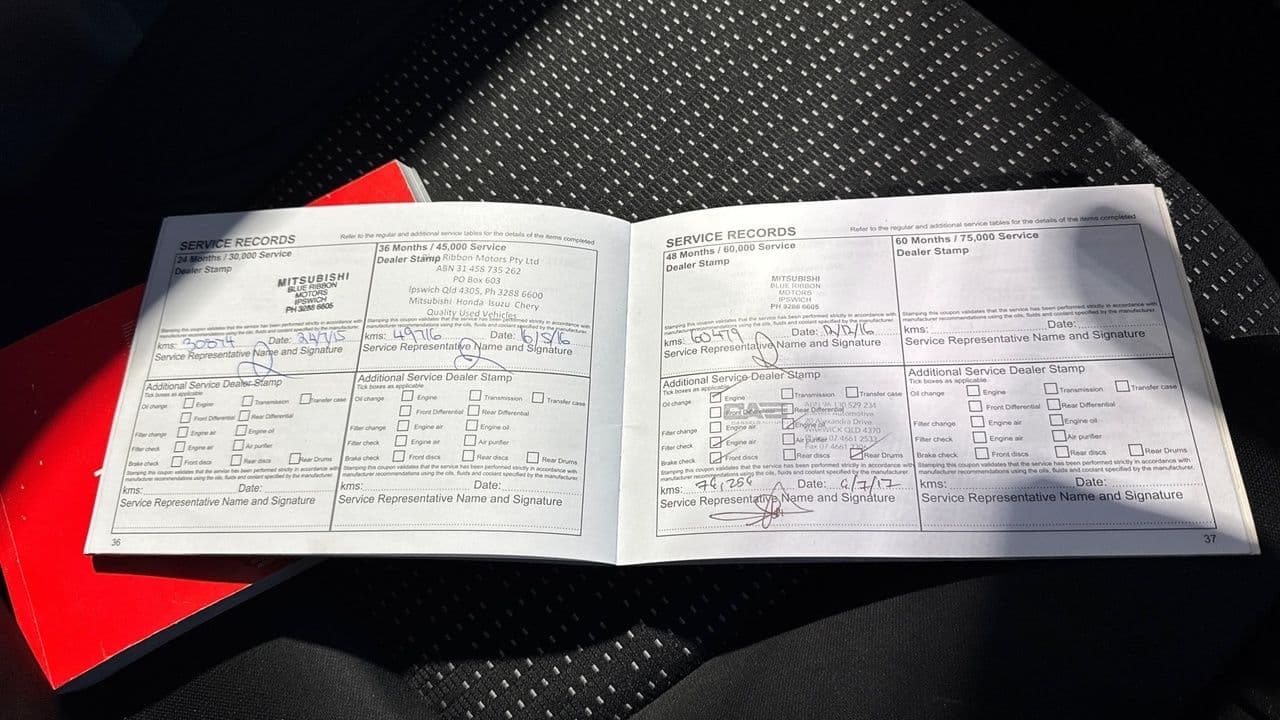 SERVICE RECORDS
Refer to the regular and additional service tables for the details of the items completed
24 Months / 30,000 Service
Dealer Stamp
MITSUBISHI
BLUE RIBBON
MOTORS
IPSWICH
PH 3288 6605
Stamping this coupon validates that the service has been performed strictly in accordance with
manufacturer recommendations using the oils, fluids and coolant specified by the manufacturer.
kms: 30574 Date: 24/7/15
Service Representative Name and Signature
36 Months / 45,000 Service
Dealer Stamp
Ribbon Motors Pty Ltd
ABN 31 458 735 262
PO Box 603
Ipswich Qld 4305, Ph 3288 6600
Mitsubishi Honda Isuzu Chery
Quality Used Vehicles
Stamping this coupon validates that the service has been performed strictly in accordance with
manufacturer recommendations using the oils, fluids and coolant specified by the manufacturer.
kms: 49716 Date: 6/5/16
Service Representative Name and Signature
Additional Service Dealer Stamp
Tick boxes as applicable
Oil change Engine Transmission Transfer case
Front Differential Rear Differential
Filter change Engine air Engine oil
Filter check Engine air Air purifier
Brake check Front discs Rear discs Rear Drums
Stamping this coupon validates that the service has been performed strictly in accordance with
manufacturer recommendations using the oils, fluids and coolant specified by the manufacturer.
kms: Date:
Service Representative Name and Signature
Additional Service Dealer Stamp
Tick boxes as applicable
Oil change Engine Transmission Transfer case
Front Differential Rear Differential
Filter change Engine air Engine oil
Filter check Engine air Air purifier
Brake check Front discs Rear discs Rear Drums
Stamping this coupon validates that the service has been performed strictly in accordance with
manufacturer recommendations using the oils, fluids and coolant specified by the manufacturer.
kms: Date:
Service Representative Name and Signature
36
SERVICE RECORDS
Refer to the regular and additional service tables for the details of the items completed
48 Months / 60,000 Service
Dealer Stamp
MITSUBISHI
BLUE RIBBON
MOTORS
IPSWICH
PH 3288 6605
Stamping this coupon validates that the service has been performed strictly in accordance with
manufacturer recommendations using the oils, fluids and coolant specified by the manufacturer.
kms: 60479 Date: 12/12/16
Service Representative Name and Signature
60 Months / 75,000 Service
Dealer Stamp
Stamping this coupon validates that the service has been performed strictly in accordance with
manufacturer recommendations using the oils, fluids and coolant specified by the manufacturer.
kms: Date:
Service Representative Name and Signature
Additional Service Dealer Stamp
Tick boxes as applicable
Oil change Engine Transmission Transfer case
Front Differential Rear Differential
529 234
Filter change Engine air Engine oil
Alexandra Drive
WARWICK QLD 4370
Filter check Engine air Air purifier
07 4661 2533
Fax 07 4661
Brake check Front discs Rear discs Rear Drums
Stamping this coupon validates that the service has been performed strictly in accordance with
manufacturer recommendations using the oils, fluids and coolant specified by the manufacturer.
kms: 74,254 Date: 4/7/17
Service Representative Name and Signature
Additional Service Dealer Stamp
Tick boxes as applicable
Oil change Engine Transmission Transfer case
Front Differential Rear Differential
Filter change Engine air Engine oil
Filter check Engine air Air purifier
Brake check Front discs Rear discs Rear Drums
Stamping this coupon validates that the service has been performed strictly in accordance with
manufacturer recommendations using the oils, fluids and coolant specified by the manufacturer.
kms: Date:
Service Representative Name and Signature
37